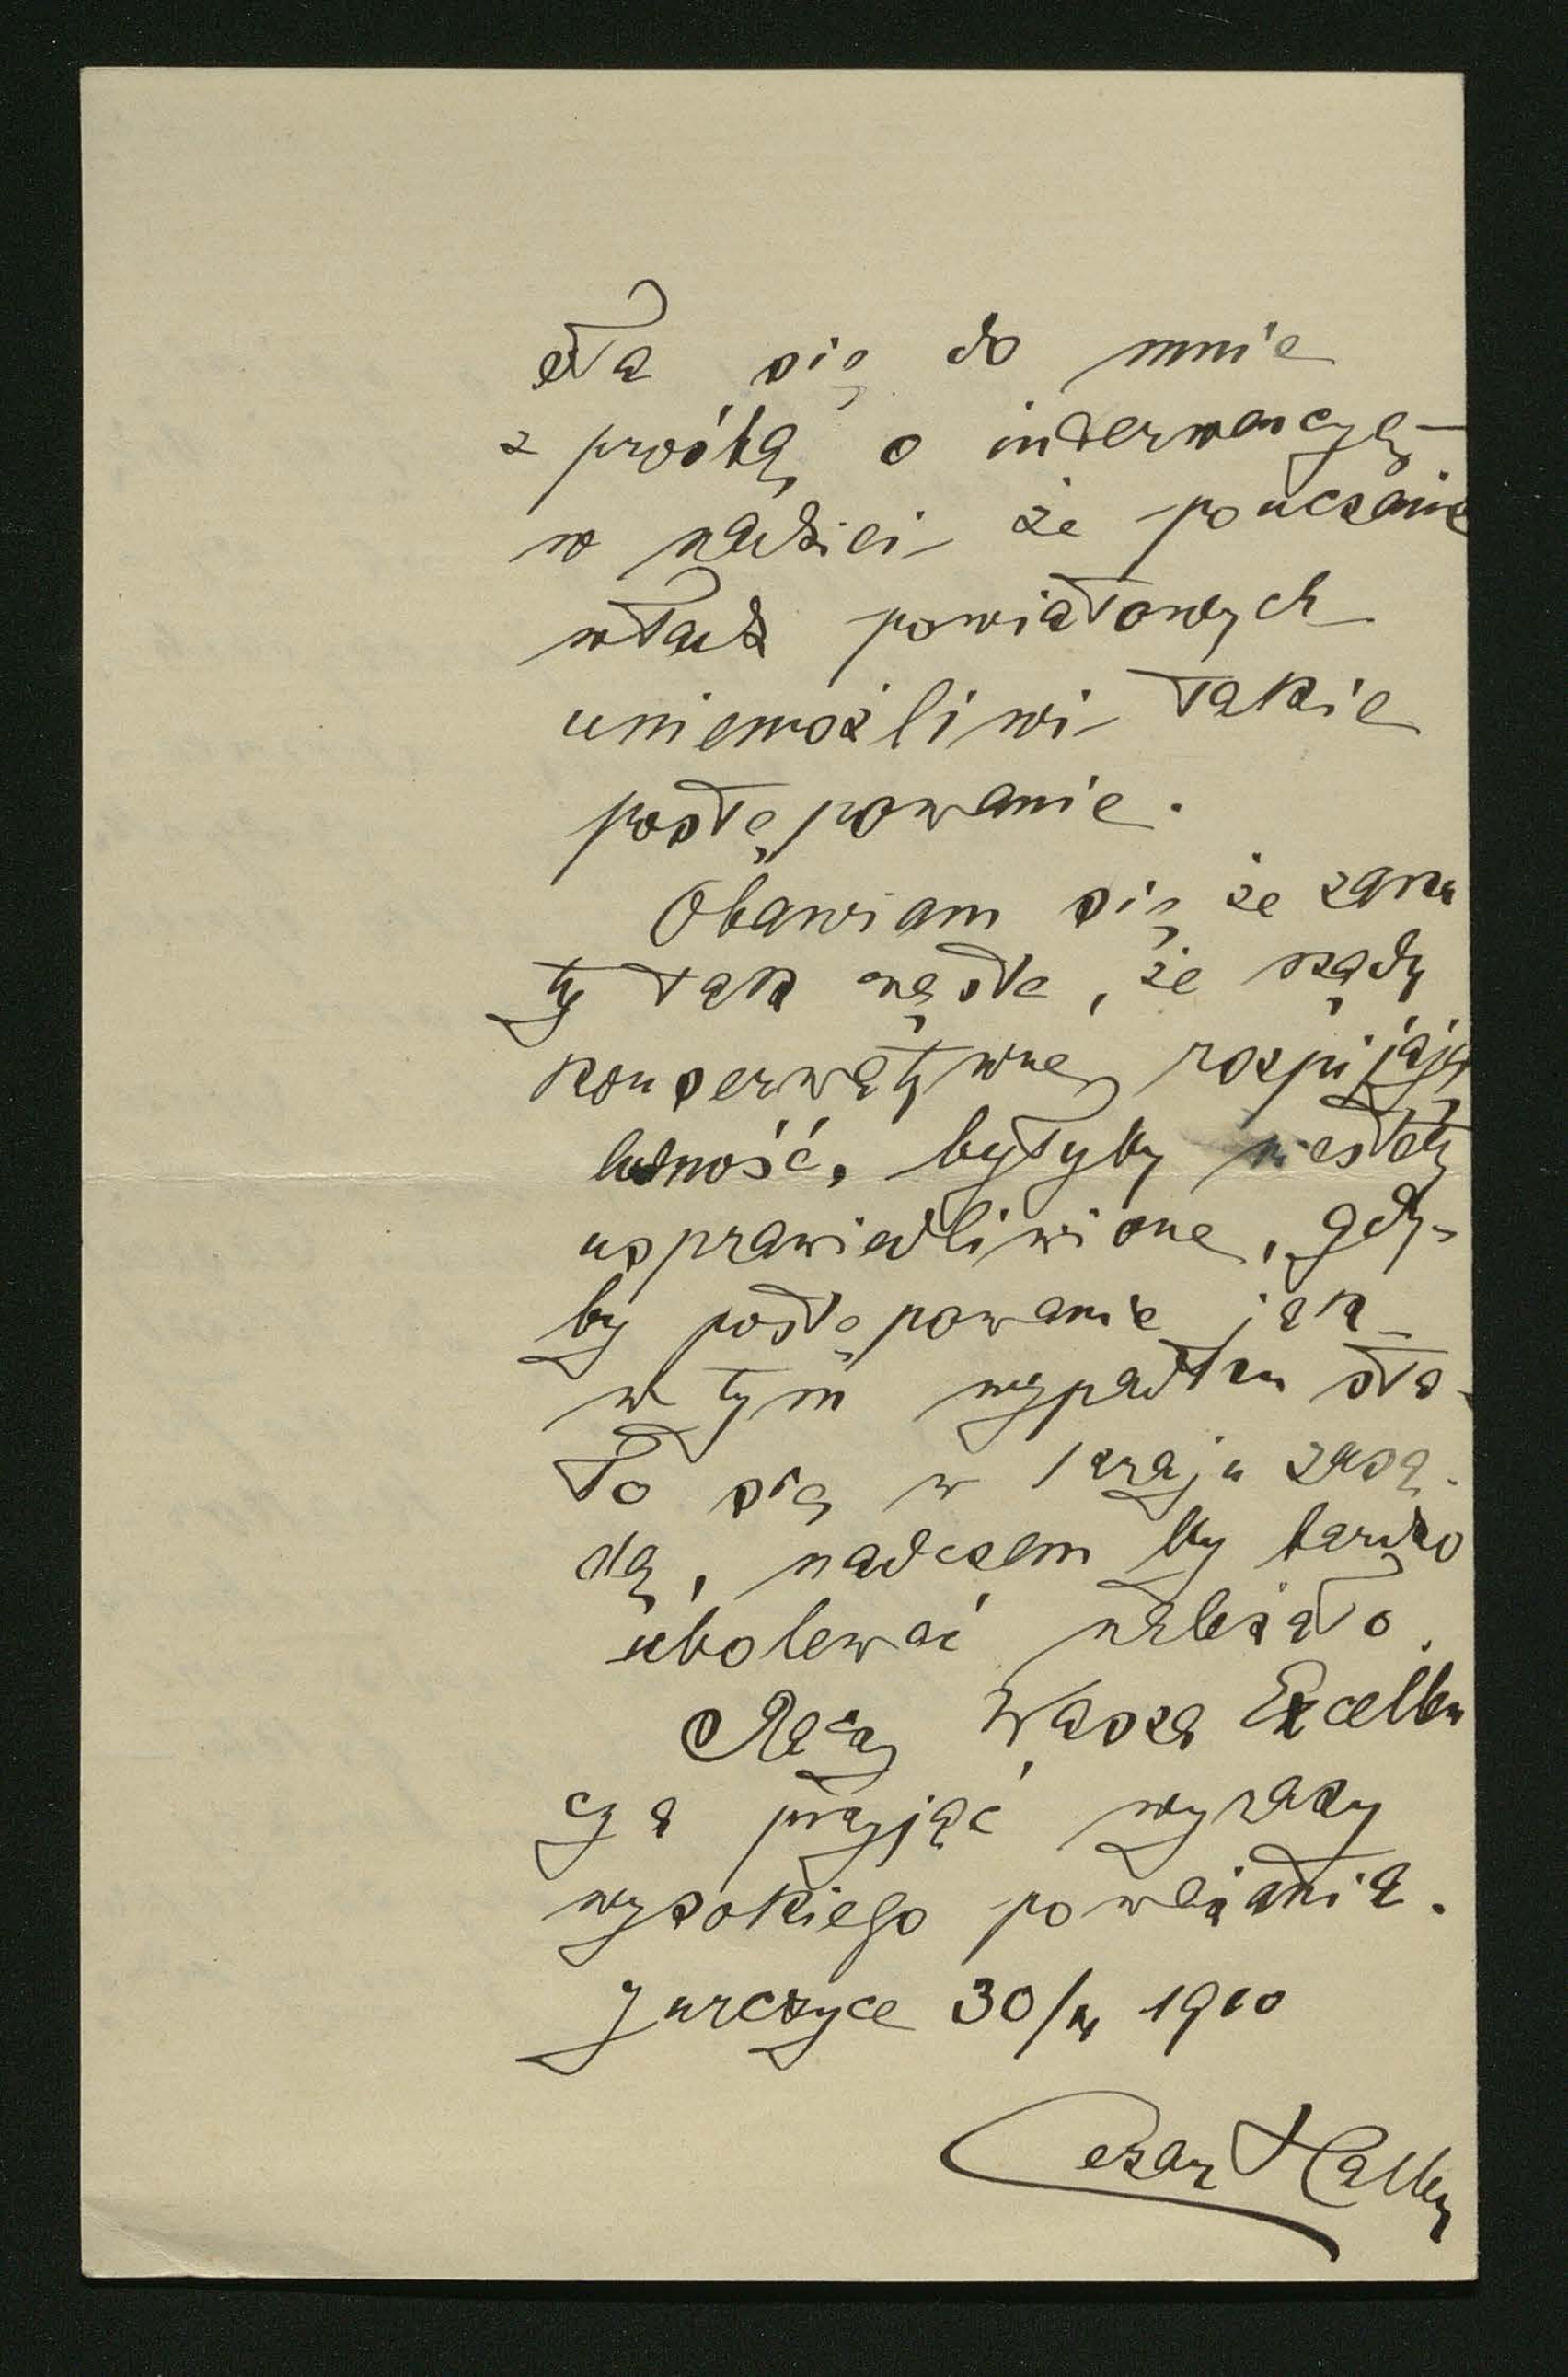 ła się do mnie
z prośbą o interwencyę
w nadziei że pouczenie
władz powiatowych
uniemożliwi takie
postępowanie.
Obawiam się że zarzu
ty tak częste, że rządy
konserwatywne, rozpijają
ludność, byłyby niestety
usprawiedliwione, gdy-
by postępowanie jak
w tym wypadku sta-
ło się w kraju zasa-
dą, nadczem by bardzo
ubolewać należało.
Raczy Wasza Excellen
cya przyjąć wyrazy
wysokiego poważania.
Jurczyce 30/ 1910
Cezar Haller